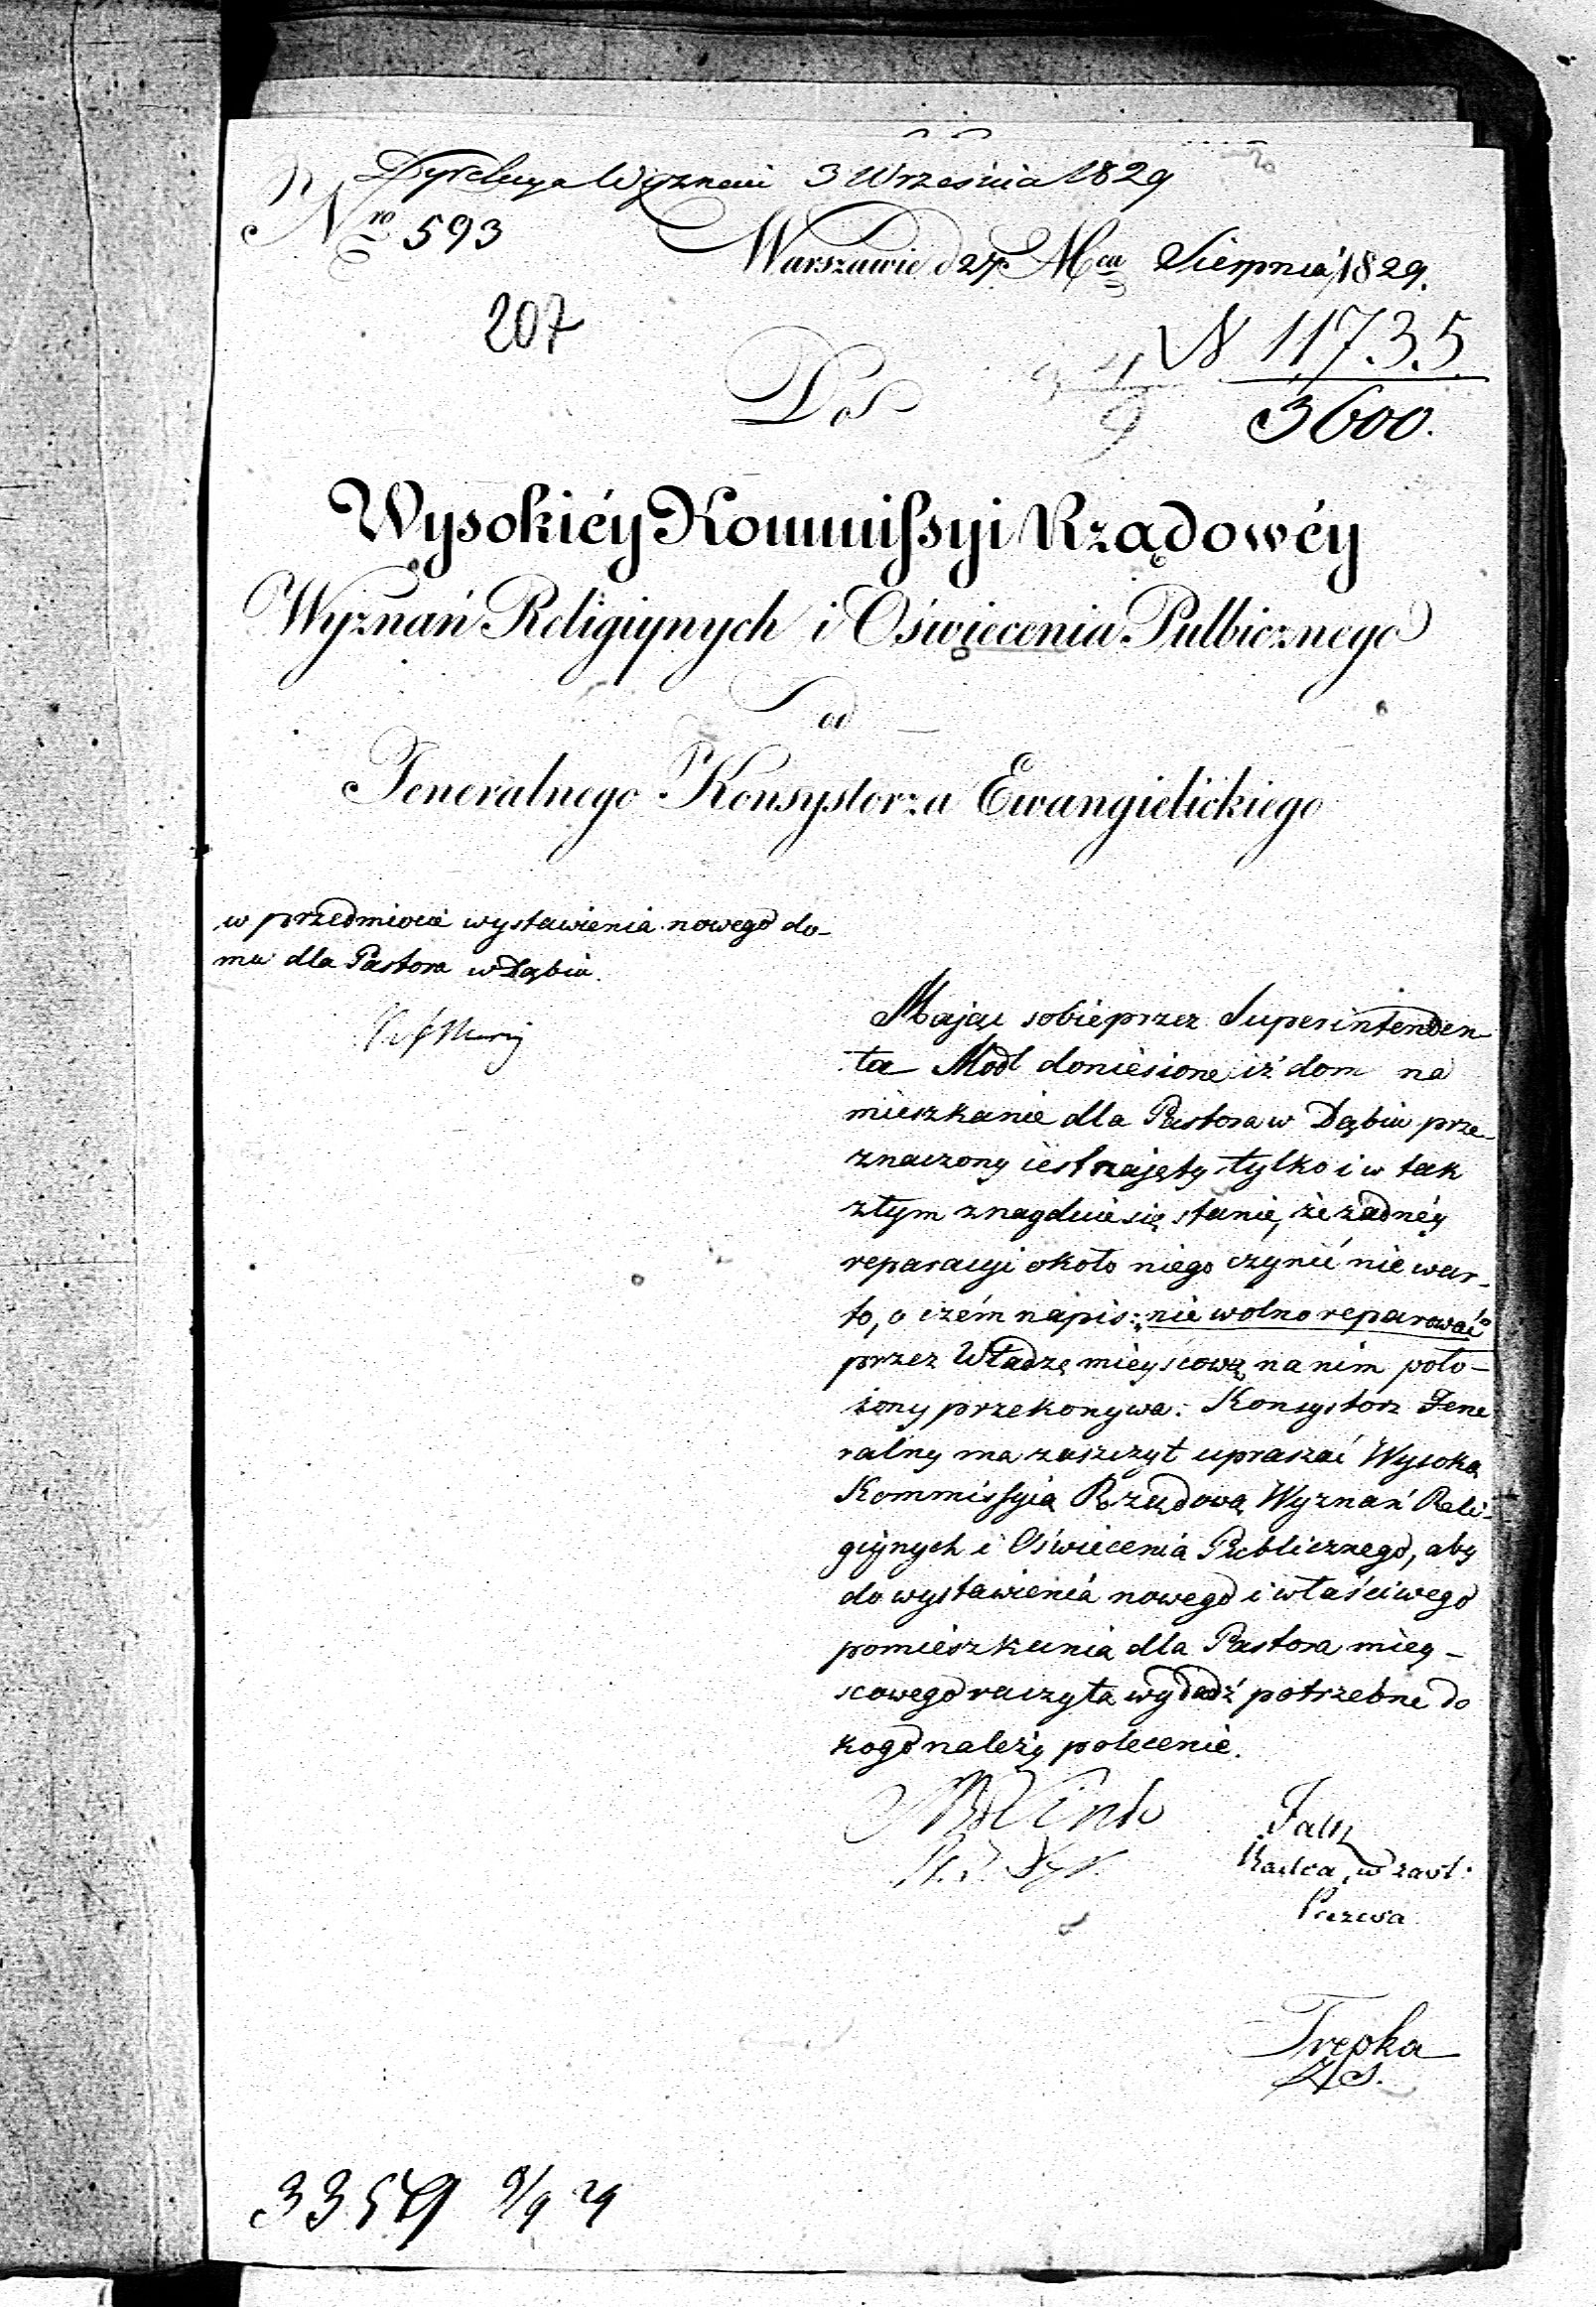 Dyrekcya Wyznań 3 Września 1829
Nro 593
Warszawie d 27 Mca Sierpnia 1829.
207
N 11735
3600.
Do
4
9
Wysokiéy Kommissyi Rządowéy
Wyznań Religiynych i Oświecenia Pulbicznego
od
Jeneralnego Konsystorza Ewangielickiego
w przedmiocie wystawienia nowego do-
mu dla Pastora w Dąbiu.
Mając sobie przez Superintenden
ta Modl doniesione iż dom na
mieszkanie dla Pastora w Dąbiu prze-
znaczony iest najęty tylko i w tak
złym znayduie się stanie, że żadnéy
reparacyi około niego czynić nie war-
to, o czém napis: "nie wolno reparować"
przez Władzę mieyscową na nim poło-
żony przekonywa: Konsystorz Jene
ralny ma zaszczyt upraszać Wysoką
Kommissyią Rządową Wyznań Reli-
giynych i Oświecenia Publicznego, aby
do wystawienia nowego i właściwego
pomieszkania dla Pastora miey-
scowego raczyła wydadź potrzebne do
kogo należy polecenie.
Radca, w zast:
Prezesa
Trepka
ZS.
3359 9/9 29